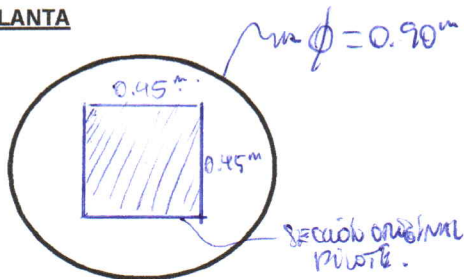 LANTA
ϕ = 0.90 m
0.45 m.
0.45 m
SECCIÓN ORIGINAL
PILOTE.